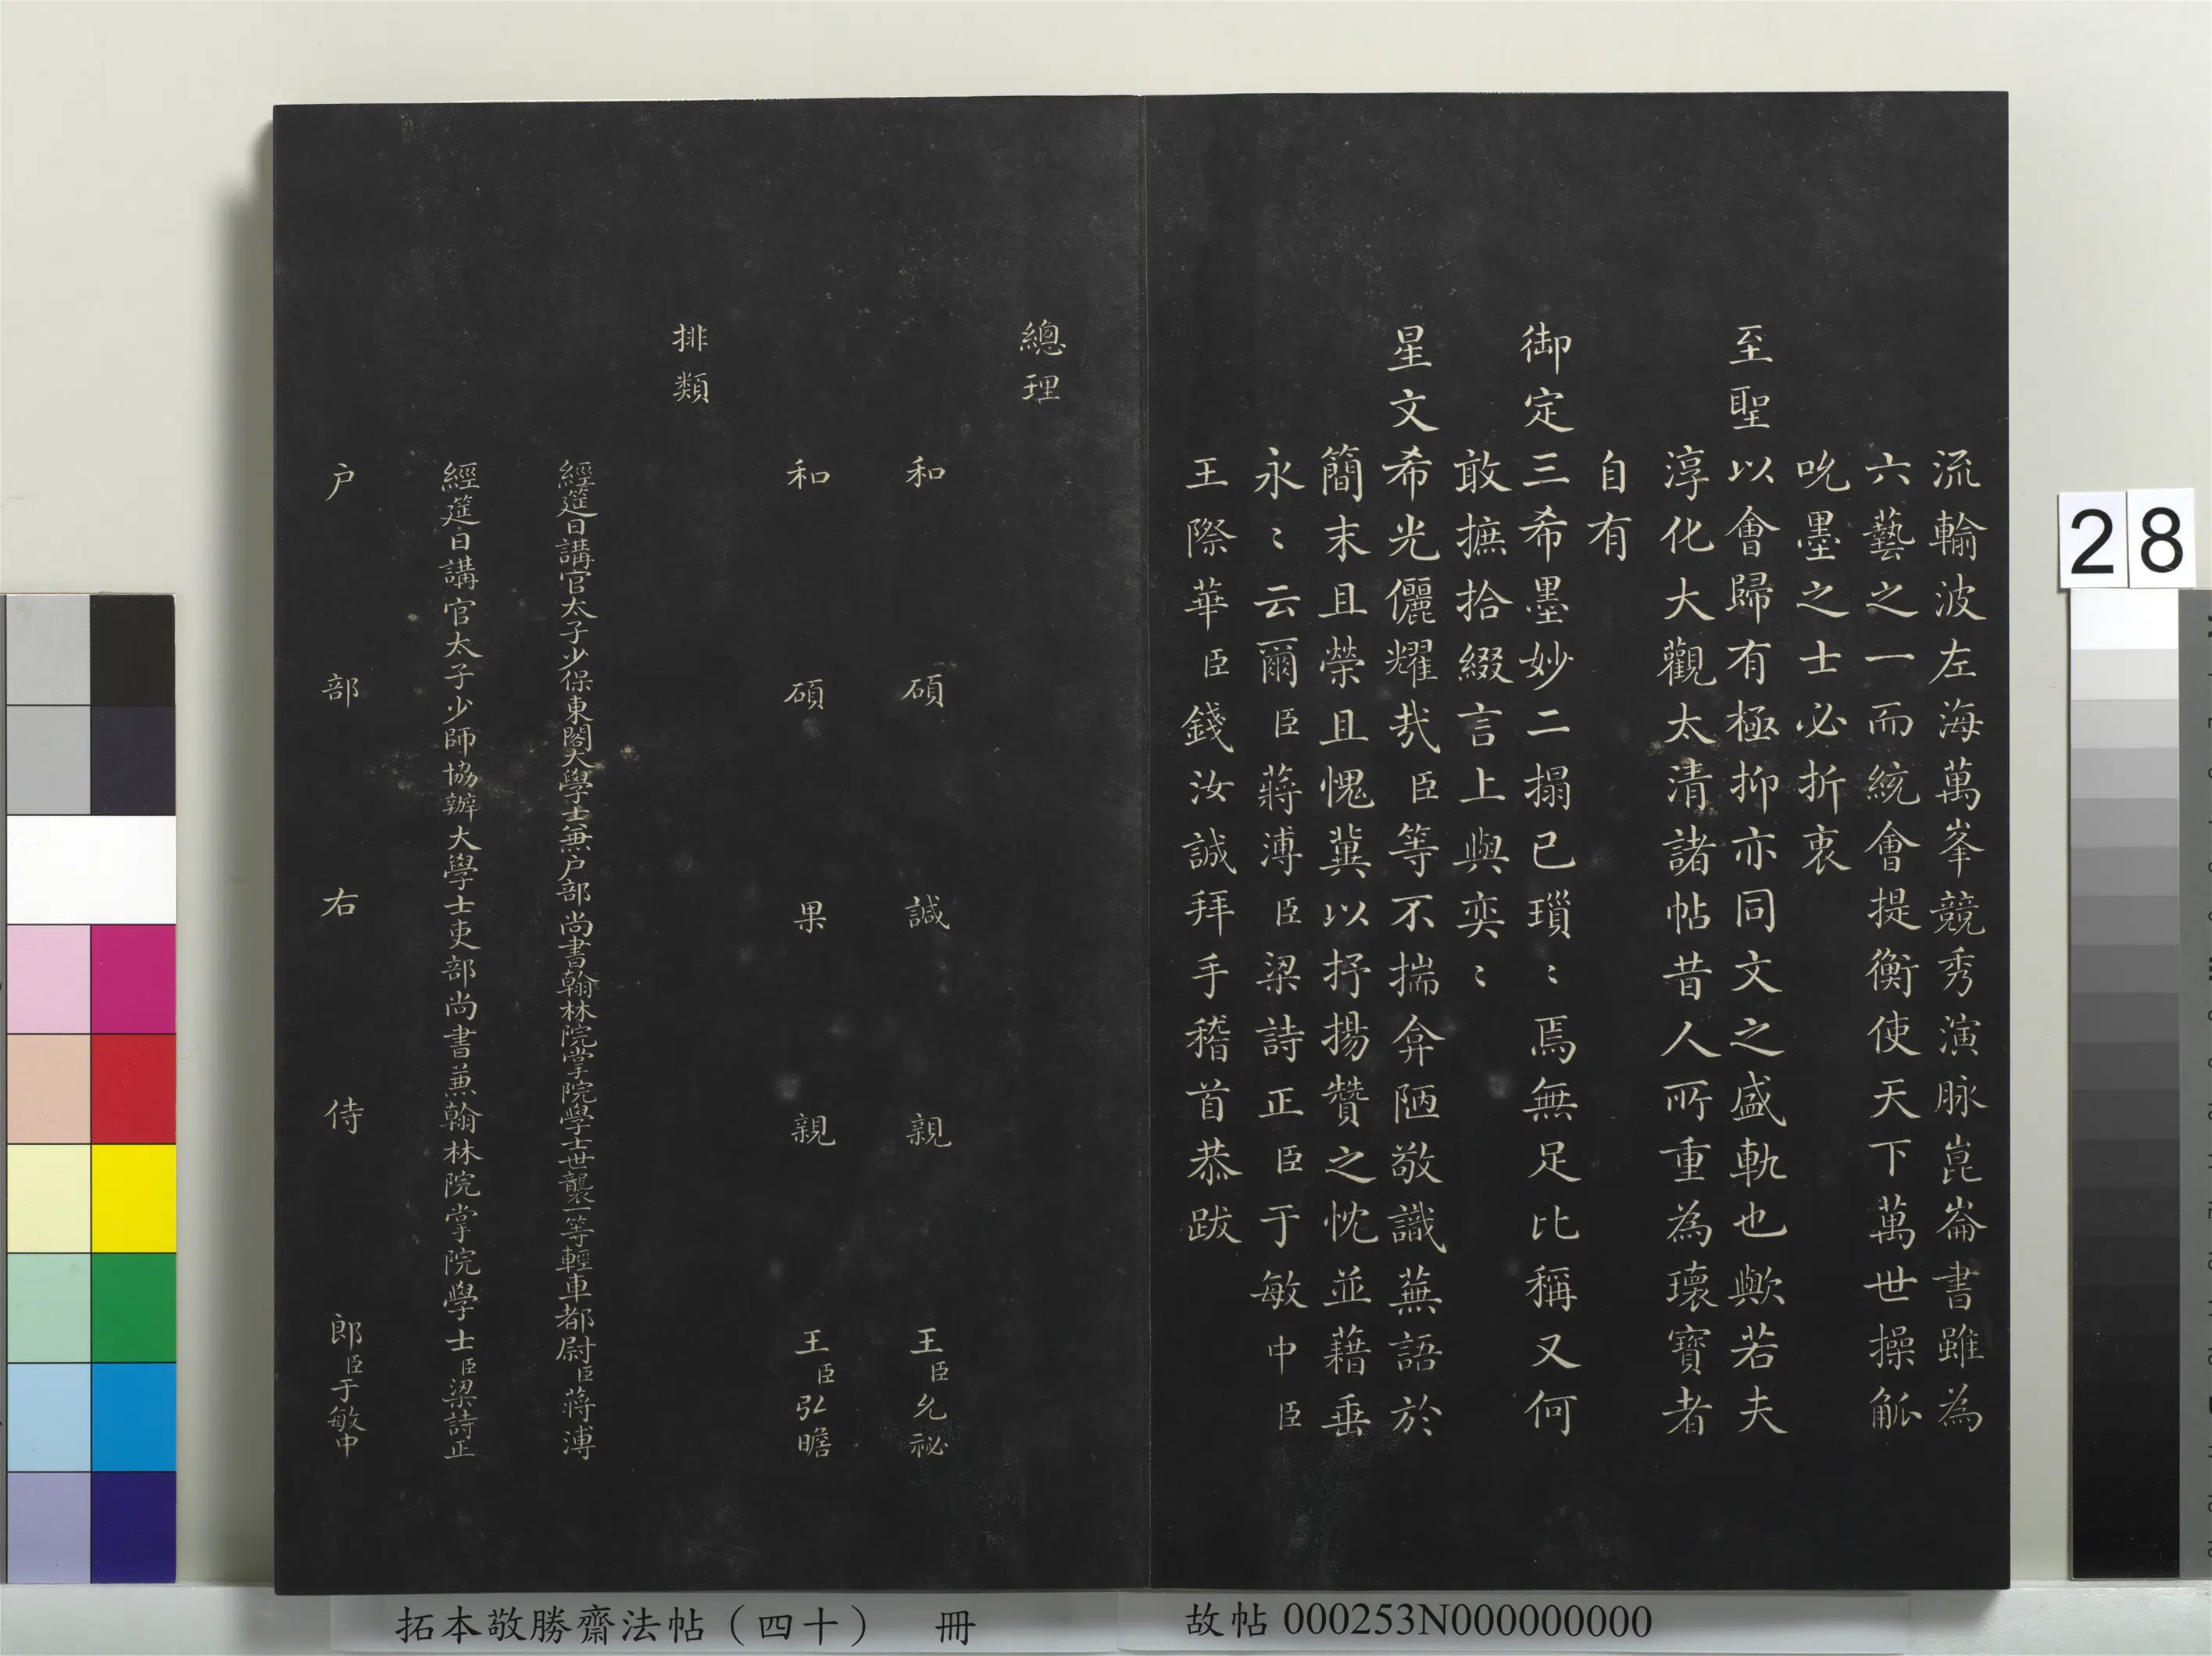 流輸波左海萬峯競秀演脉崑崙書雖為
六藝之一而統會提衡使天下萬世操觚
吮墨之士必折衷
至聖以會歸有極抑亦同文之盛軌也歟若夫
淳化大觀太清諸帖昔人所重為瓌寶者
自有
御定三希墨妙二搨已瑣〻焉無足比稱又何
敢摭拾綴言上與奕〻
星文希光儷耀㢤臣等不揣弇陋敬識蕪語於
簡末且榮且愧冀以抒揚贊之忱並藉垂
永〻云爾臣蔣溥臣梁詩正臣于敏中臣
王際華臣錢汝誠拜手稽首恭跋
總理
和碩諴親王臣允祕
和碩果親王臣弘瞻
排類
經筵日講官太子少保東閣大學士兼户部尚書翰林院掌院學士世襲一等輕車都尉臣蔣溥
經筵日講官太子少師協辦大學士吏部尚書兼翰林院掌院學士臣梁詩正
户部右侍郎臣于敏中
28
拓本敬勝齋法帖（四十） 冊
故帖000253N000000000